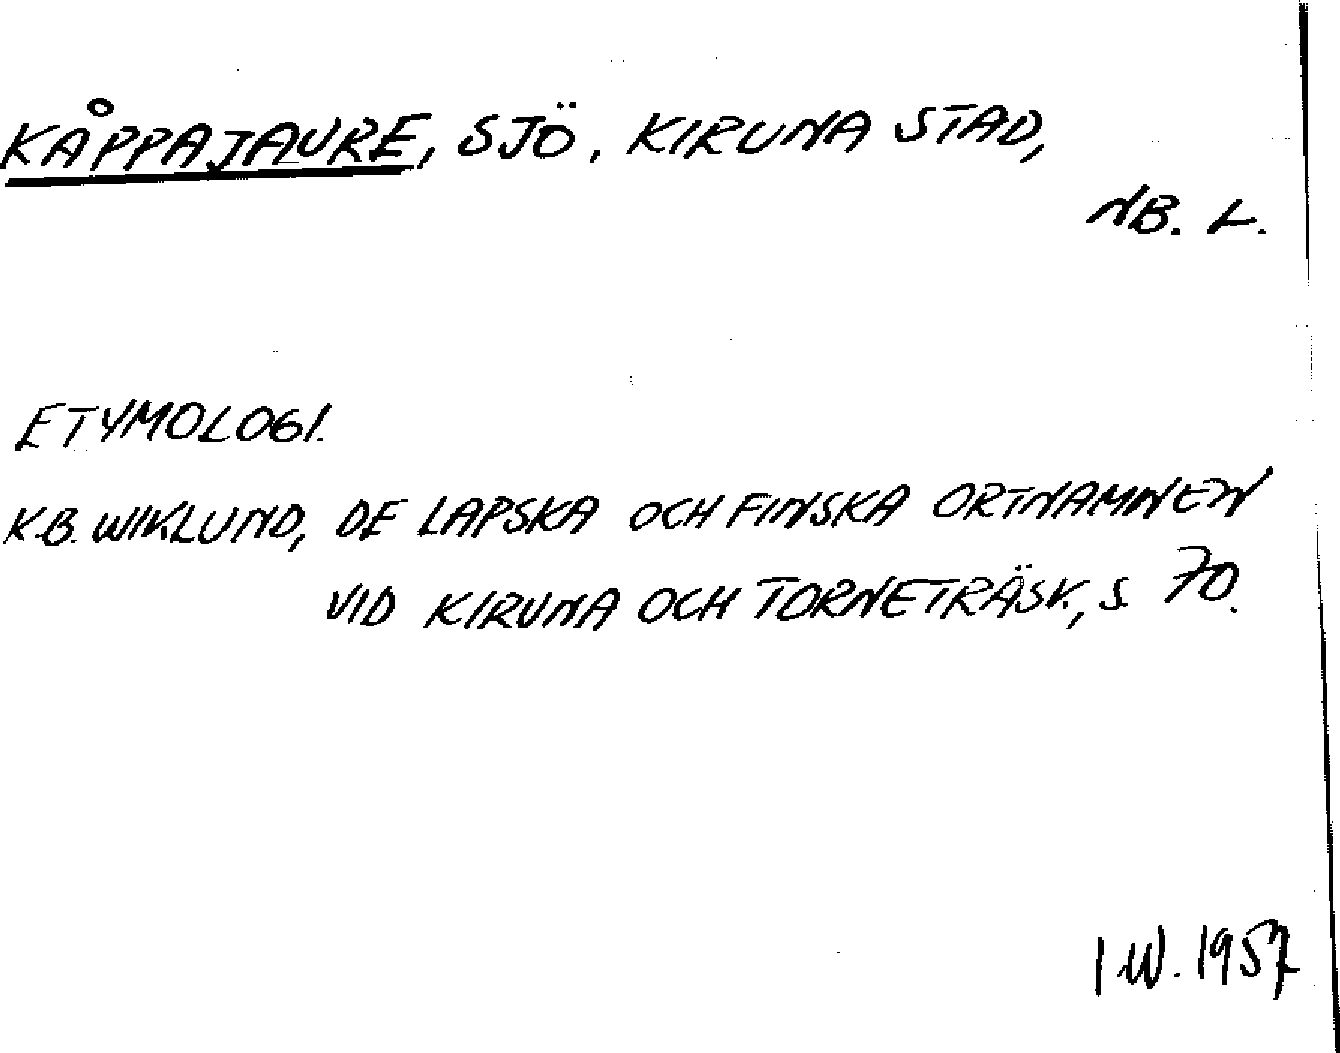 KÅPPAJAURE, SJÖ, KIRUNA STAD,
NB. L.
ETYMOLOGI.
K.B. WIKLUND, DE LAPSKA OCH FINSKA ORTNAMNEN
VID KIRUNA OCH TORNETRÄSK, S. 70.
I W. 1957